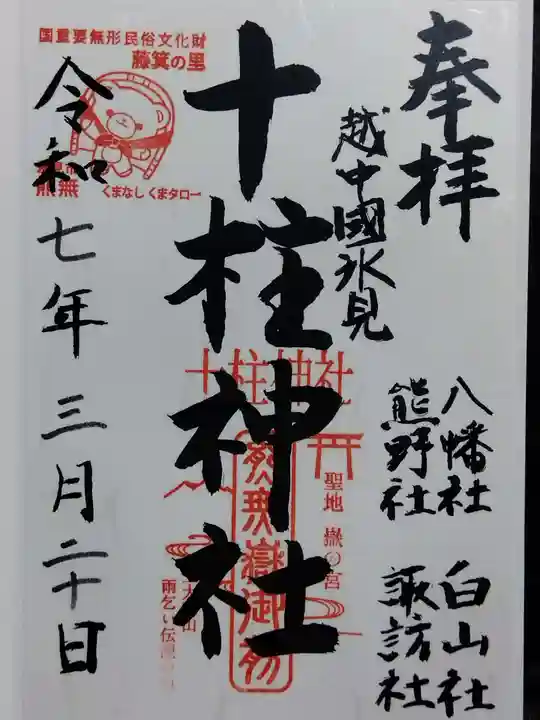 奉拝
越中國氷見
八幡社 白山社
熊野社 諏訪社
十柱神社
令和七年三月二十日
国重要無形民俗文化財
藤箕の里
熊無
くまなしくまタロー
十柱神社
聖地
宮
雨乞い伝